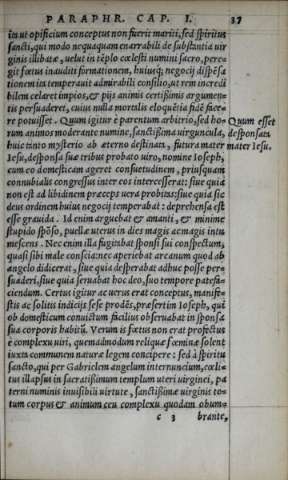 PARAPHR. CAP. I. 37
ius ut opificium conceptus non fuerit mariti, sed spiritus
sancti, qui modo nequaquam enarrabili de substantia uir
ginis illibatæ, uelut in tēplo cœlesti numini sacro, pere-
git fœtus inauditi formationem, huiusq; negocij dispēsa
tionem ita temperauit admirabili consilio, ut rem incredi
bilem celaret impios, & pijs animis certissimis argumen-
tis persuaderet, cuius nulla mortalis eloquētia fidē face-
re potuisset. Quum igitur è parentum arbitrio, sed ho-
rum animos moderante numine, sanctissima uirguncula,
huic tanto mysterio ab æterno destinata, futura mater
Iesu, desponsa suæ tribus probato uiro, nomine Ioseph,
cum eo domesticam ageret consuetudinem, priusquam
connubialis congressus inter eos intercesserat: siue quia
non est ad libidinem præceps uera probitas: siue quia sic
deus ordinem huius negocij temperabat: deprehensa est
esse grauida. Id enim arguebat & amanti, & minime
stupido spōso, puellæ uterus in dies magis ac magis intu
mescens. Nec enim illa fugitabat sponsi sui conspectum,
quasi sibi male conscia: nec aperiebat arcanum quod ab
angelo didicerat, siue quia desperabat adhuc posse per-
suaderi, siue quia seruabat hoc deo, suo tempore patefa-
ciendum. Certus igitur ac uerus erat conceptus, manife-
stis ac solitis indicijs sese prodēs, præsertim Ioseph, qui
ob domesticum conuictum facilius obseruabat in sponsa
sua corporis habitū. Verum is fœtus non erat profectus
è complexu uiri, quemadmodum reliquæ fœminæ solent
iuxta communem naturæ legem concipere: sed à spiritu
sancto, qui per Gabrielem angelum internuncium, cœli-
tus illapsus in sacratissimum templum uteri uirginei, pa
terni numinis inuisibili uirtute, sanctissimæ uirginis to-
tum corpus & animum ceu complexu quodam obum-
c 3 brante,
Quum esset
desponsata
mater Iesu.